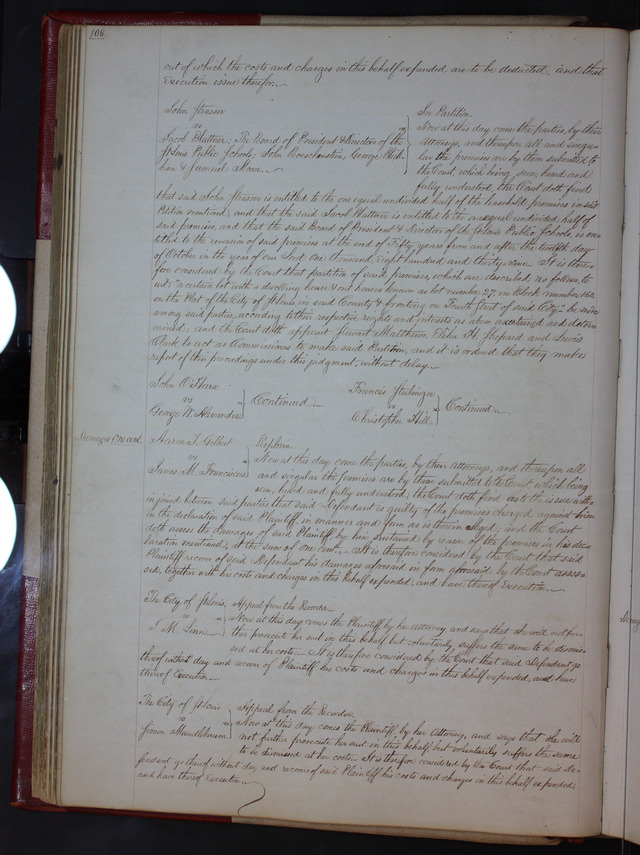 108.
out of which the costs and charges in this behalf expended are to be deducted, and that
Execution issue therefor.
John Strasser
vs
Jacob Blattner; The Board of President & Directors of the
St Louis Public Schools; John George
& Samuel
In Partition.
Now at this day come the parties, by their
Attorneys, and thereupon all and singu-
lar the premises are by them submitted to
the Court, which being seen, heard and
fully understood, the Court doth find
that said John Strasser is entitled to the one equal undivided half of the leasehold premises in said
Petition mentioned, and that the said Jacob Blattner is entitled to the one equal undivided half of
said premises, and that the said Board of President & Directors of the St Louis Public Schools, is en-
titled to the reversion of said premises at the end of Fifty years from and after the twelfth day
of October in the year of our Lord one thousand, eight hundred and thirty nine. It is there-
fore considered by the Court that partition of said premises, which are described as follows, to
wit: "a certain lot with a dwelling house & out houses known as lot number 27, in block number 102,
on the Plat of the City of St Louis, in said County & fronting on Fourth Street of said City" be made
among said parties, according to their respective rights and interests as above ascertained and deter-
mined; and the Court doth appoint Stewart Matthews, Elihu H. Shepard and Lewis
Clark to act as Commissioners to make said Partition, and it is ordered that they make
report of their proceedings under this judgment, without delay.
John O'Hara
vs
George W. Alexander
Continued
Francis
vs
Christopher Hill
Continued
Damages One cent.
Aaron T. Gilbert
vs
James M. Franciscus
Replevin.
Now at this day come the parties, by their Attorneys, and thereupon all
and singular the premises are by them submitted to the Court which being
seen, heard and fully understood, the Court doth find as to the issue with-
in joined between said parties that said Defendant is guilty of the premises charged against him
in the declaration of said Plaintiff, in manner and form as is therein alleged; and the Court
doth assess the damages of said Plaintiff by him sustained by reason of the premises in his dec-
laration mentioned, at the sum of one cent. It is therefore considered by the Court that said
Plaintiff recover of said Defendant his damages aforesaid in form aforesaid by the Court asses-
sed, together with his costs and charges in this behalf expended, and have thereof Execution.
The City of St Louis,
vs
T. M.
Appeal from the Recorder
Now at this day comes the Plaintiff by her Attorney and says that she will not fur-
ther prosecute her suit in this behalf but voluntarily suffers the same to be dismis-
sed at her costs. It is therefore considered by the Court that said Defendant go
thereof without day and recover of Plaintiff his costs and charges in this behalf expended, and have
thereof Execution.
The City of St Louis
vs
Simon Mandelbaum
Appeal from the Recorder,
Now at this day comes the Plaintiff by her Attorney, and says that she will
not further prosecute her suit in this behalf, but voluntarily suffers the same
to be dismissed at her costs. It is therefore considered by the Court that said De-
fendant go thereof without day and recover of said Plaintiff his costs and charges in this behalf expended,
and have thereof Execution.